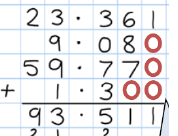 23.361
9.080
59.770
+ 1.300
93.511
2 1 2